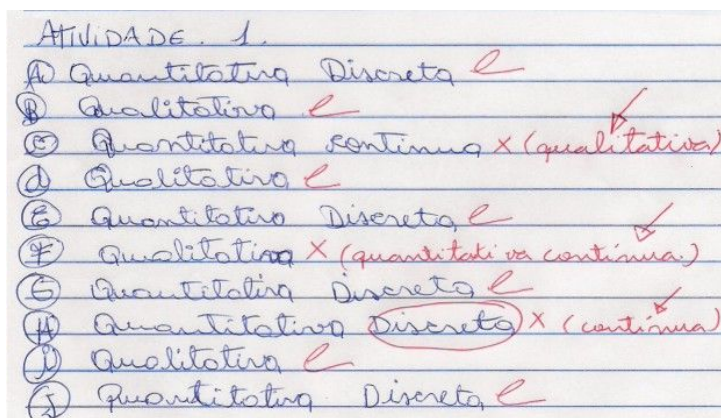 ATIVIDADE. 1.
A Quantitativa Discreta
B Qualitativa
C Quantitativa continua × (qualitativa)
d Qualitativa
E Quantitativa Discreta
F Qualitativa × (quantitativa contínua.)
G Quantitativa Discreta
H Quantitativa Discreta × (contínua)
I Qualitativa
J Quantitativa Discreta